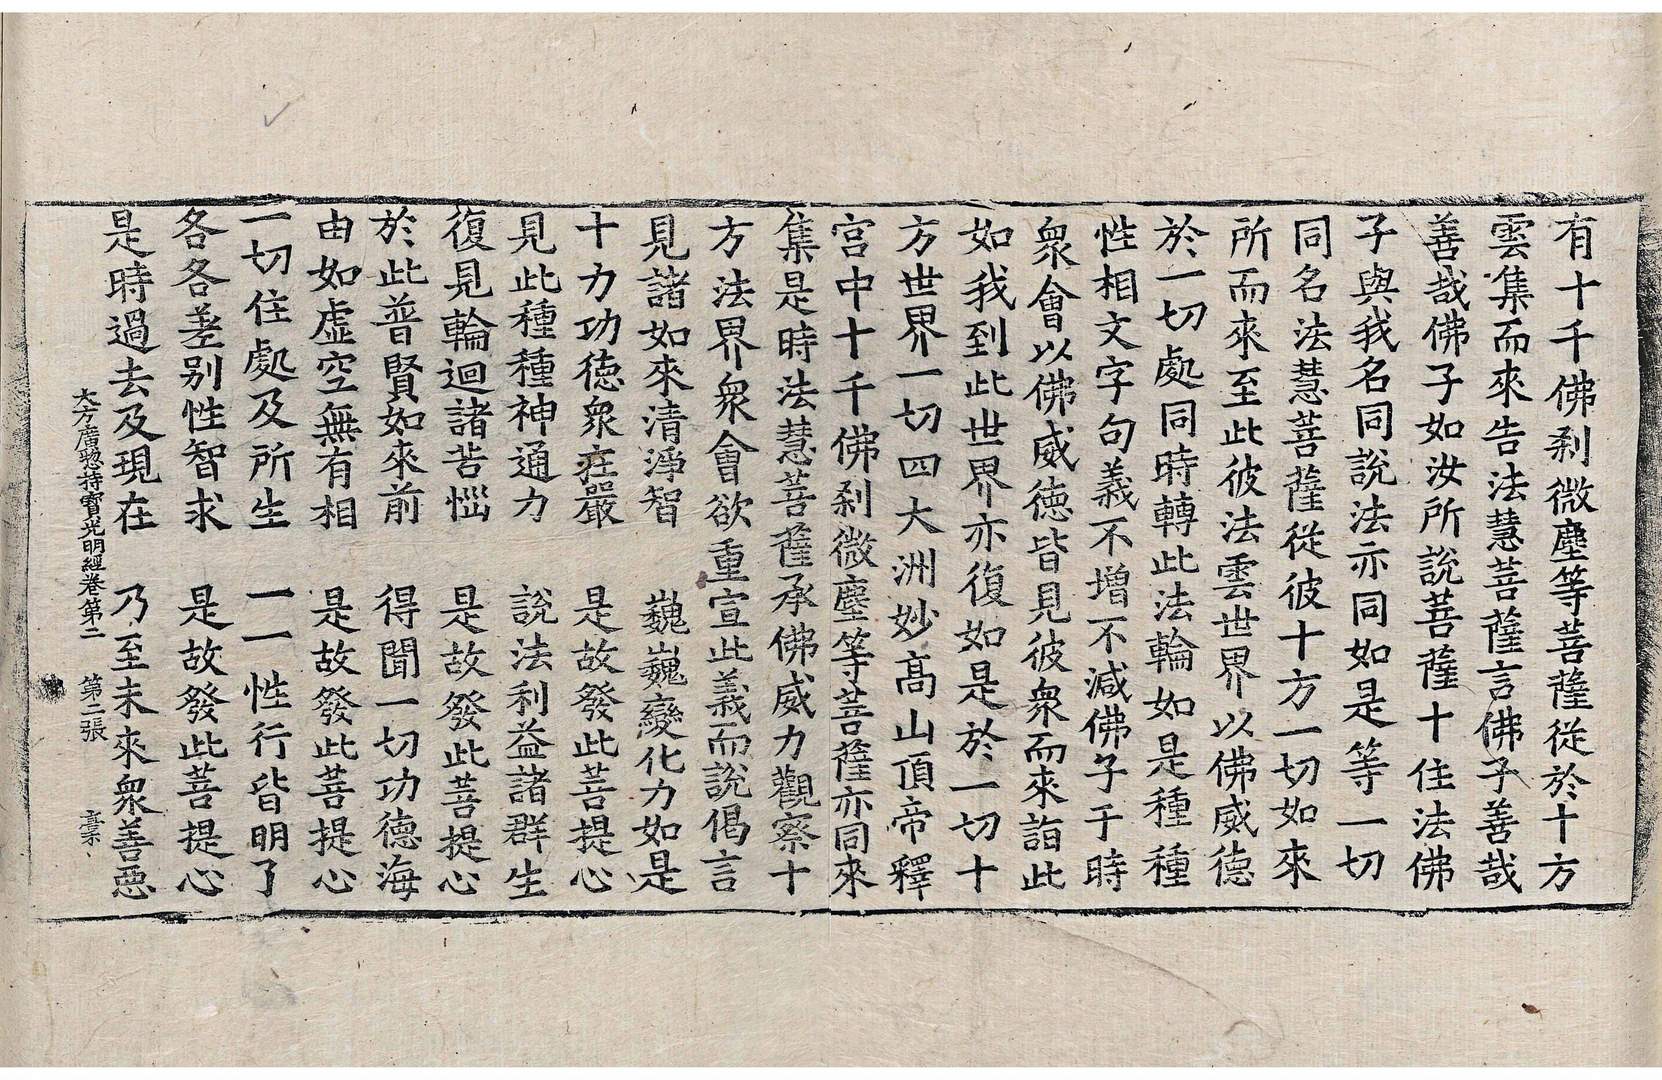 有十千佛刹微塵等菩薩從於十方
雲集而來告法慧菩薩言佛子善哉
善哉佛子如汝所說菩薩十住法佛
子與我名同說法亦同如是等一切
同名法慧菩薩從彼十方一切如來
所而來至此彼法雲世界以佛威德
於一切處同時轉此法輪如是種種
性相文字句義不增不減佛子于時
衆會以佛威德皆見彼衆而來詣此
如我到此世界亦復如是於一切十
方世界一切四大洲妙高山頂帝釋
宮中十千佛刹微塵等菩薩亦同來
集是時法慧菩薩承佛威力觀察十
方法界衆會欲重宣此義而說偈言
見諸如來清淨智　巍巍變化力如是
十力功德衆莊嚴　是故發此菩提心
見此種種神通力　說法利益諸群生
復見輪迴諸苦惱　是故發此菩提心
於此普賢如來前　得聞一切功德海
由如虛空無有相　是故發此菩提心
一切住處及所生　一一性行皆明了
各各差別性智求　是故發此菩提心
是時過去及現在　乃至未來衆善惡
大方廣惣持寶光明經卷第二　第二張　槀